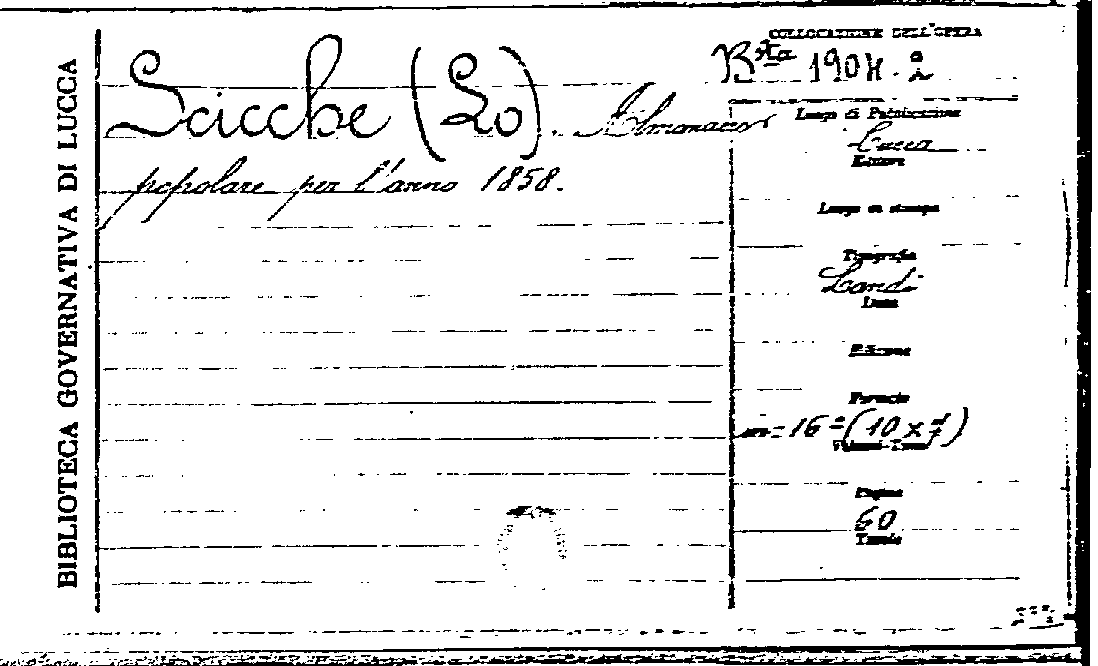 BIBLIOTECA GOVERNATIVA DI LUCCA
Scicche (Lo). Almanacco
popolare per l'anno 1858.
COLLOCAZIONE DELL'OPERA
Bsta 1904.
Luogo di Pubblicazione
Lucca
Editore
Luogo di stampa
Tipografia
Landi
Data
Edizione
Formato
in-16º (10 x 7)
Volumi-Tomi
Pagine
60
Tavole